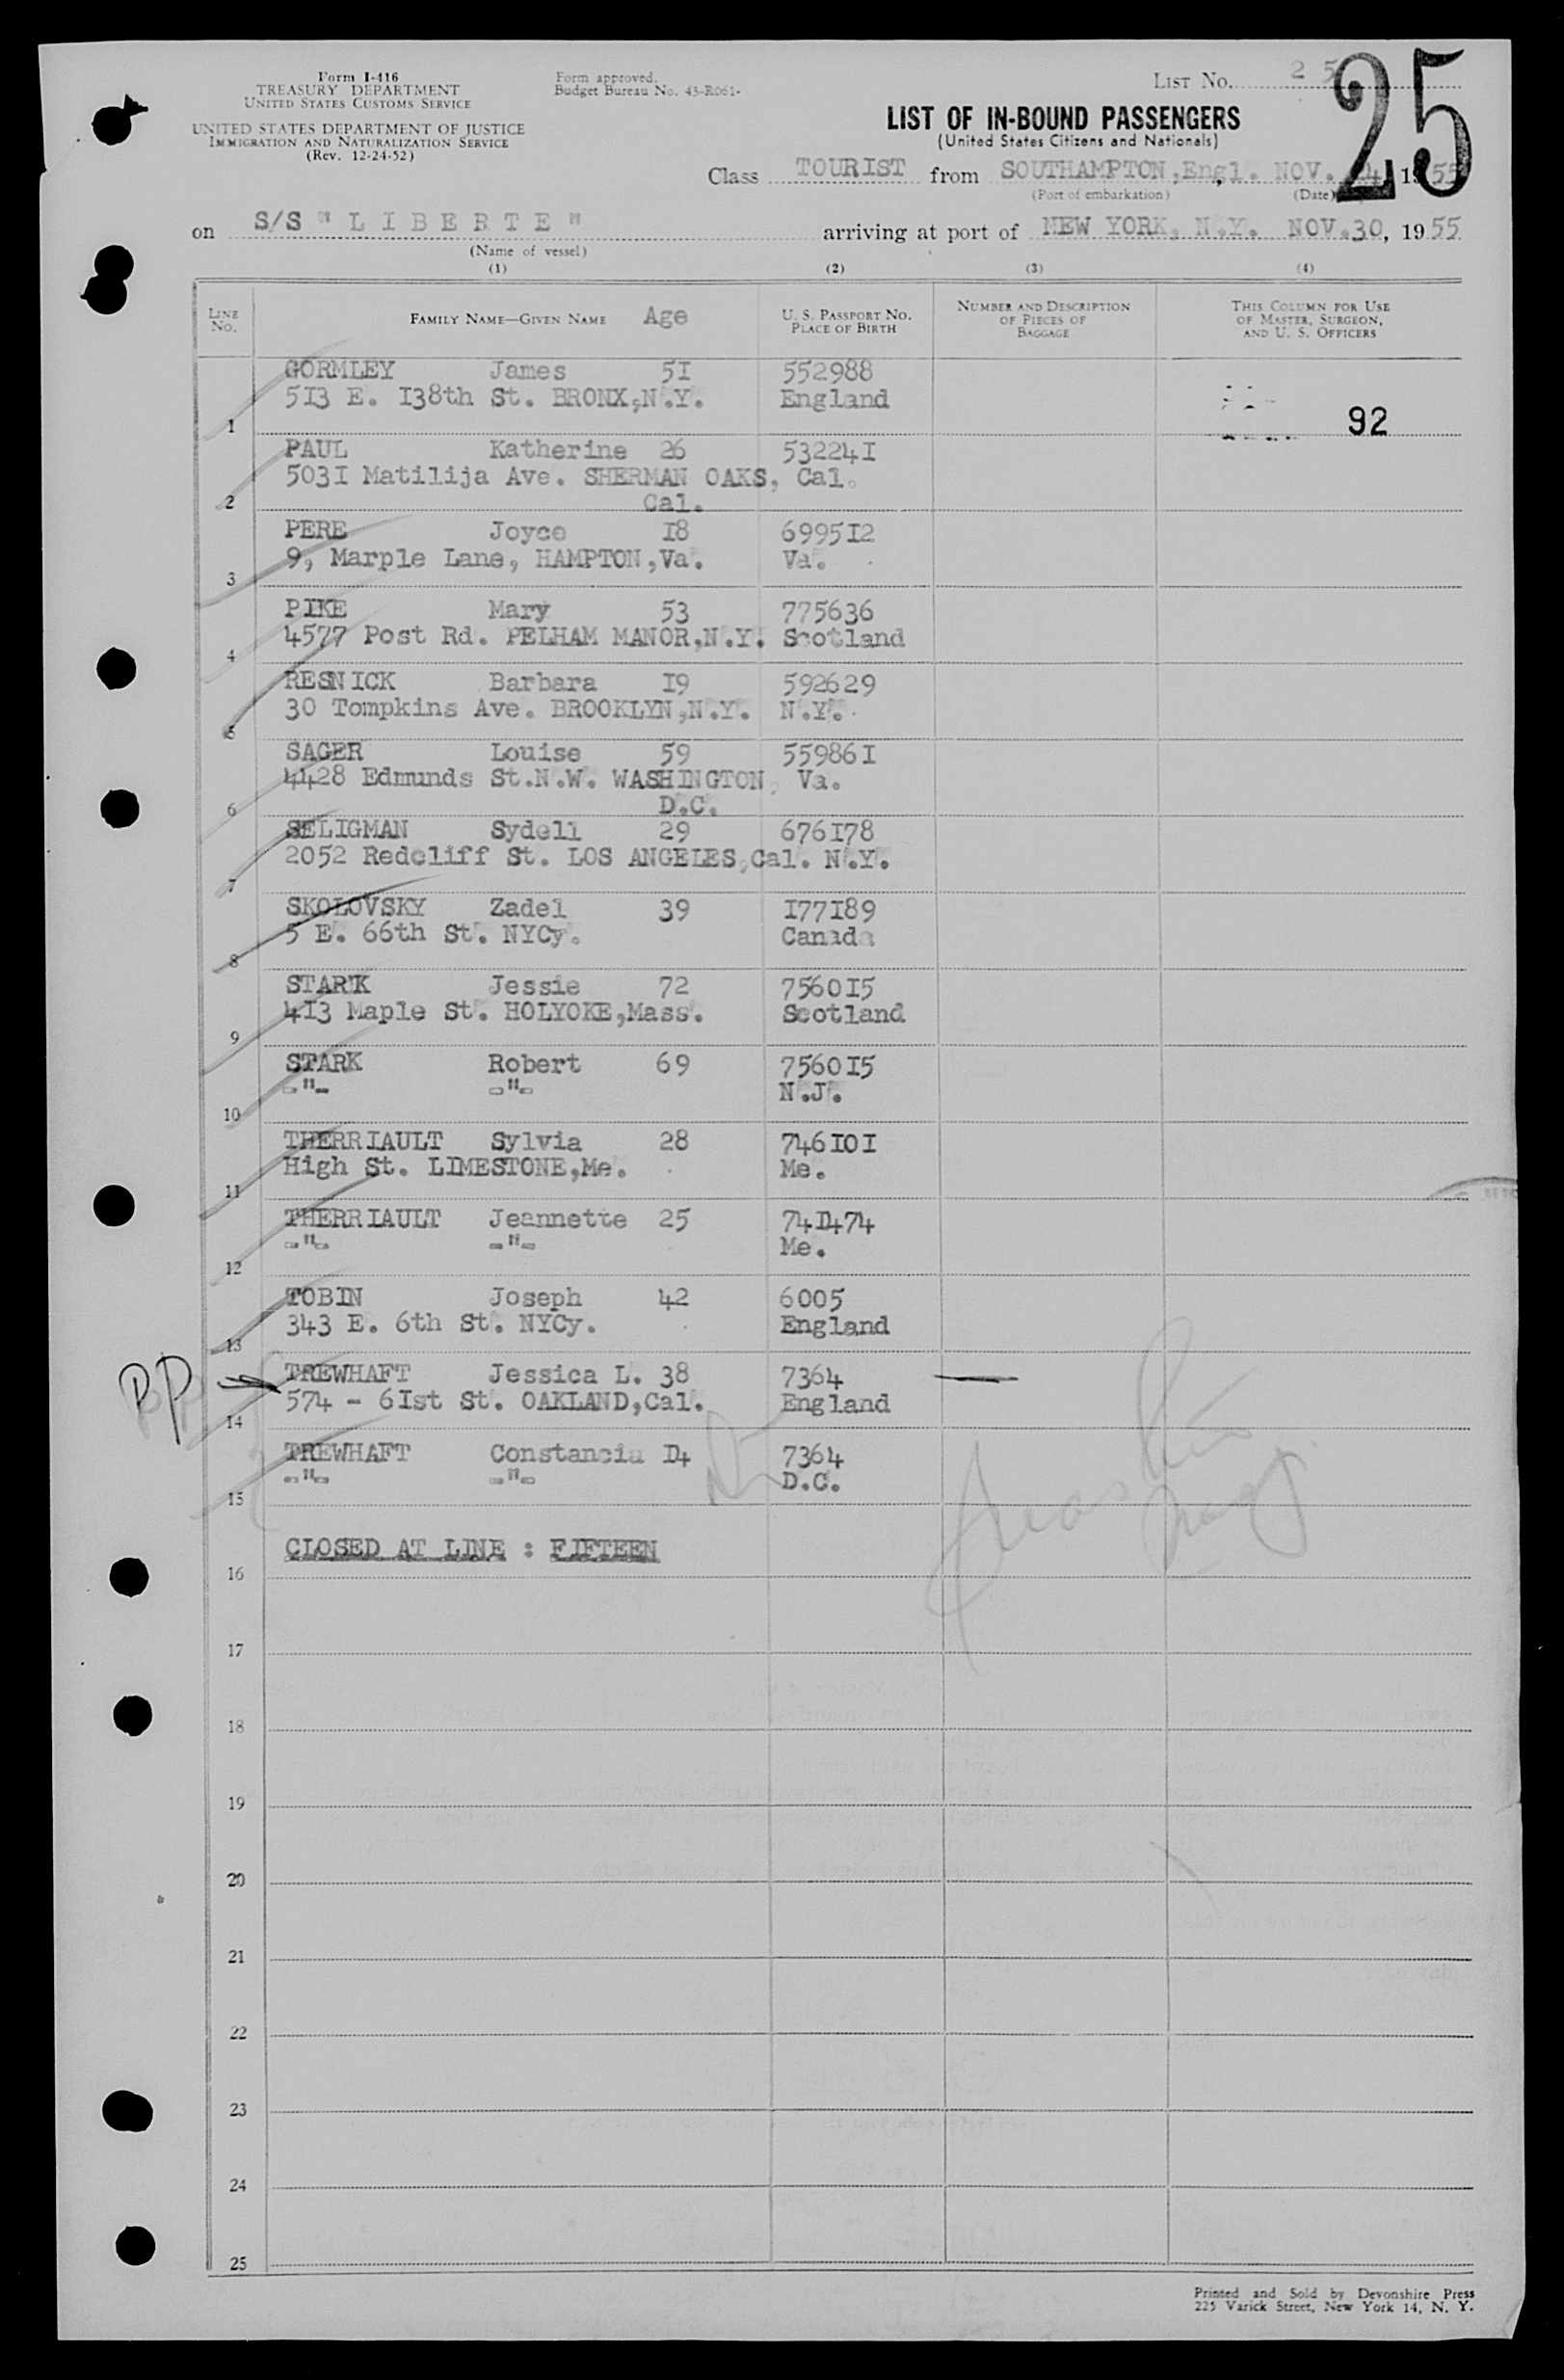 Form I-416
TREASURY DEPARTMENT
UNITED STATES CUSTOMS SERVICE
UNITED STATES DEPARTMENT OF JUSTICE
IMMIGRATION AND NATURALIZATION SERVICE
(Rev. 12-24-52)
Form approved.
Budget Bureau No. 43-R061-
LIST No. 25
25
LIST OF IN-BOUND PASSENGERS
(United States Citizens and Nationals)
Class TOURIST from SOUTHAMPTON, Engl. NOV. 1955
(Port of embarkation) (Date)
on S/S "LIBERTE" arriving at port of NEW YORK, N.Y. NOV.30, 1955
(Name of vessel)
(1) (2) (3) (4)
LINE No. FAMILY NAME—GIVEN NAME Age U. S. PASSPORT NO. PLACE OF BIRTH NUMBER AND DESCRIPTION OF PIECES OF BAGGAGE THIS COLUMN FOR USE OF MASTER, SURGEON, AND U. S. OFFICERS
GORMLEY James 5I 552988
5I3 E. I38th St. BRONX,N.Y. England
1 92
PAUL Katherine 26 53224I
503I Matilija Ave. SHERMAN OAKS, Cal.
2 Cal.
PERE Joyce I8 6995I2
9, Marple Lane, HAMPTON,Va. Va.
3
PIKE Mary 53 775636
4577 Post Rd. PELHAM MANOR,N.Y. Scotland
4
RESNICK Barbara I9 592629
30 Tompkins Ave. BROOKLYN,N.Y. N.Y.
5
SAGER Louise 59 55986I
4428 Edmunds St.N.W. WASHINGTON, Va.
6 D.C.
SELIGMAN Sydell 29 676I78
2052 Redcliff St. LOS ANGELES,Cal. N.Y.
7
SKOLOVSKY Zadel 39 I77I89
5 E. 66th St. NYCy. Canada
8
STARK Jessie 72 7560I5
4I3 Maple St. HOLYOKE,Mass. Scotland
9
STARK Robert 69 7560I5
-"- -"- N.J.
10
THERRIAULT Sylvia 28 746I0I
High St. LIMESTONE,Me. Me.
11
THERRIAULT Jeannette 25 74I474
-"- -"- Me.
12
TOBIN Joseph 42 6005
343 E. 6th St. NYCy. England
13
BP TREWHAFT Jessica L. 38 7364
574 - 6Ist St. OAKLAND,Cal. England
14
TREWHAFT Constancia I4 7364
-"- -"- D.C.
15
CLOSED AT LINE : FIFTEEN
16
17
18
19
20
21
22
23
24
25
Printed and Sold by Devonshire Press
225 Varick Street, New York 14, N. Y.